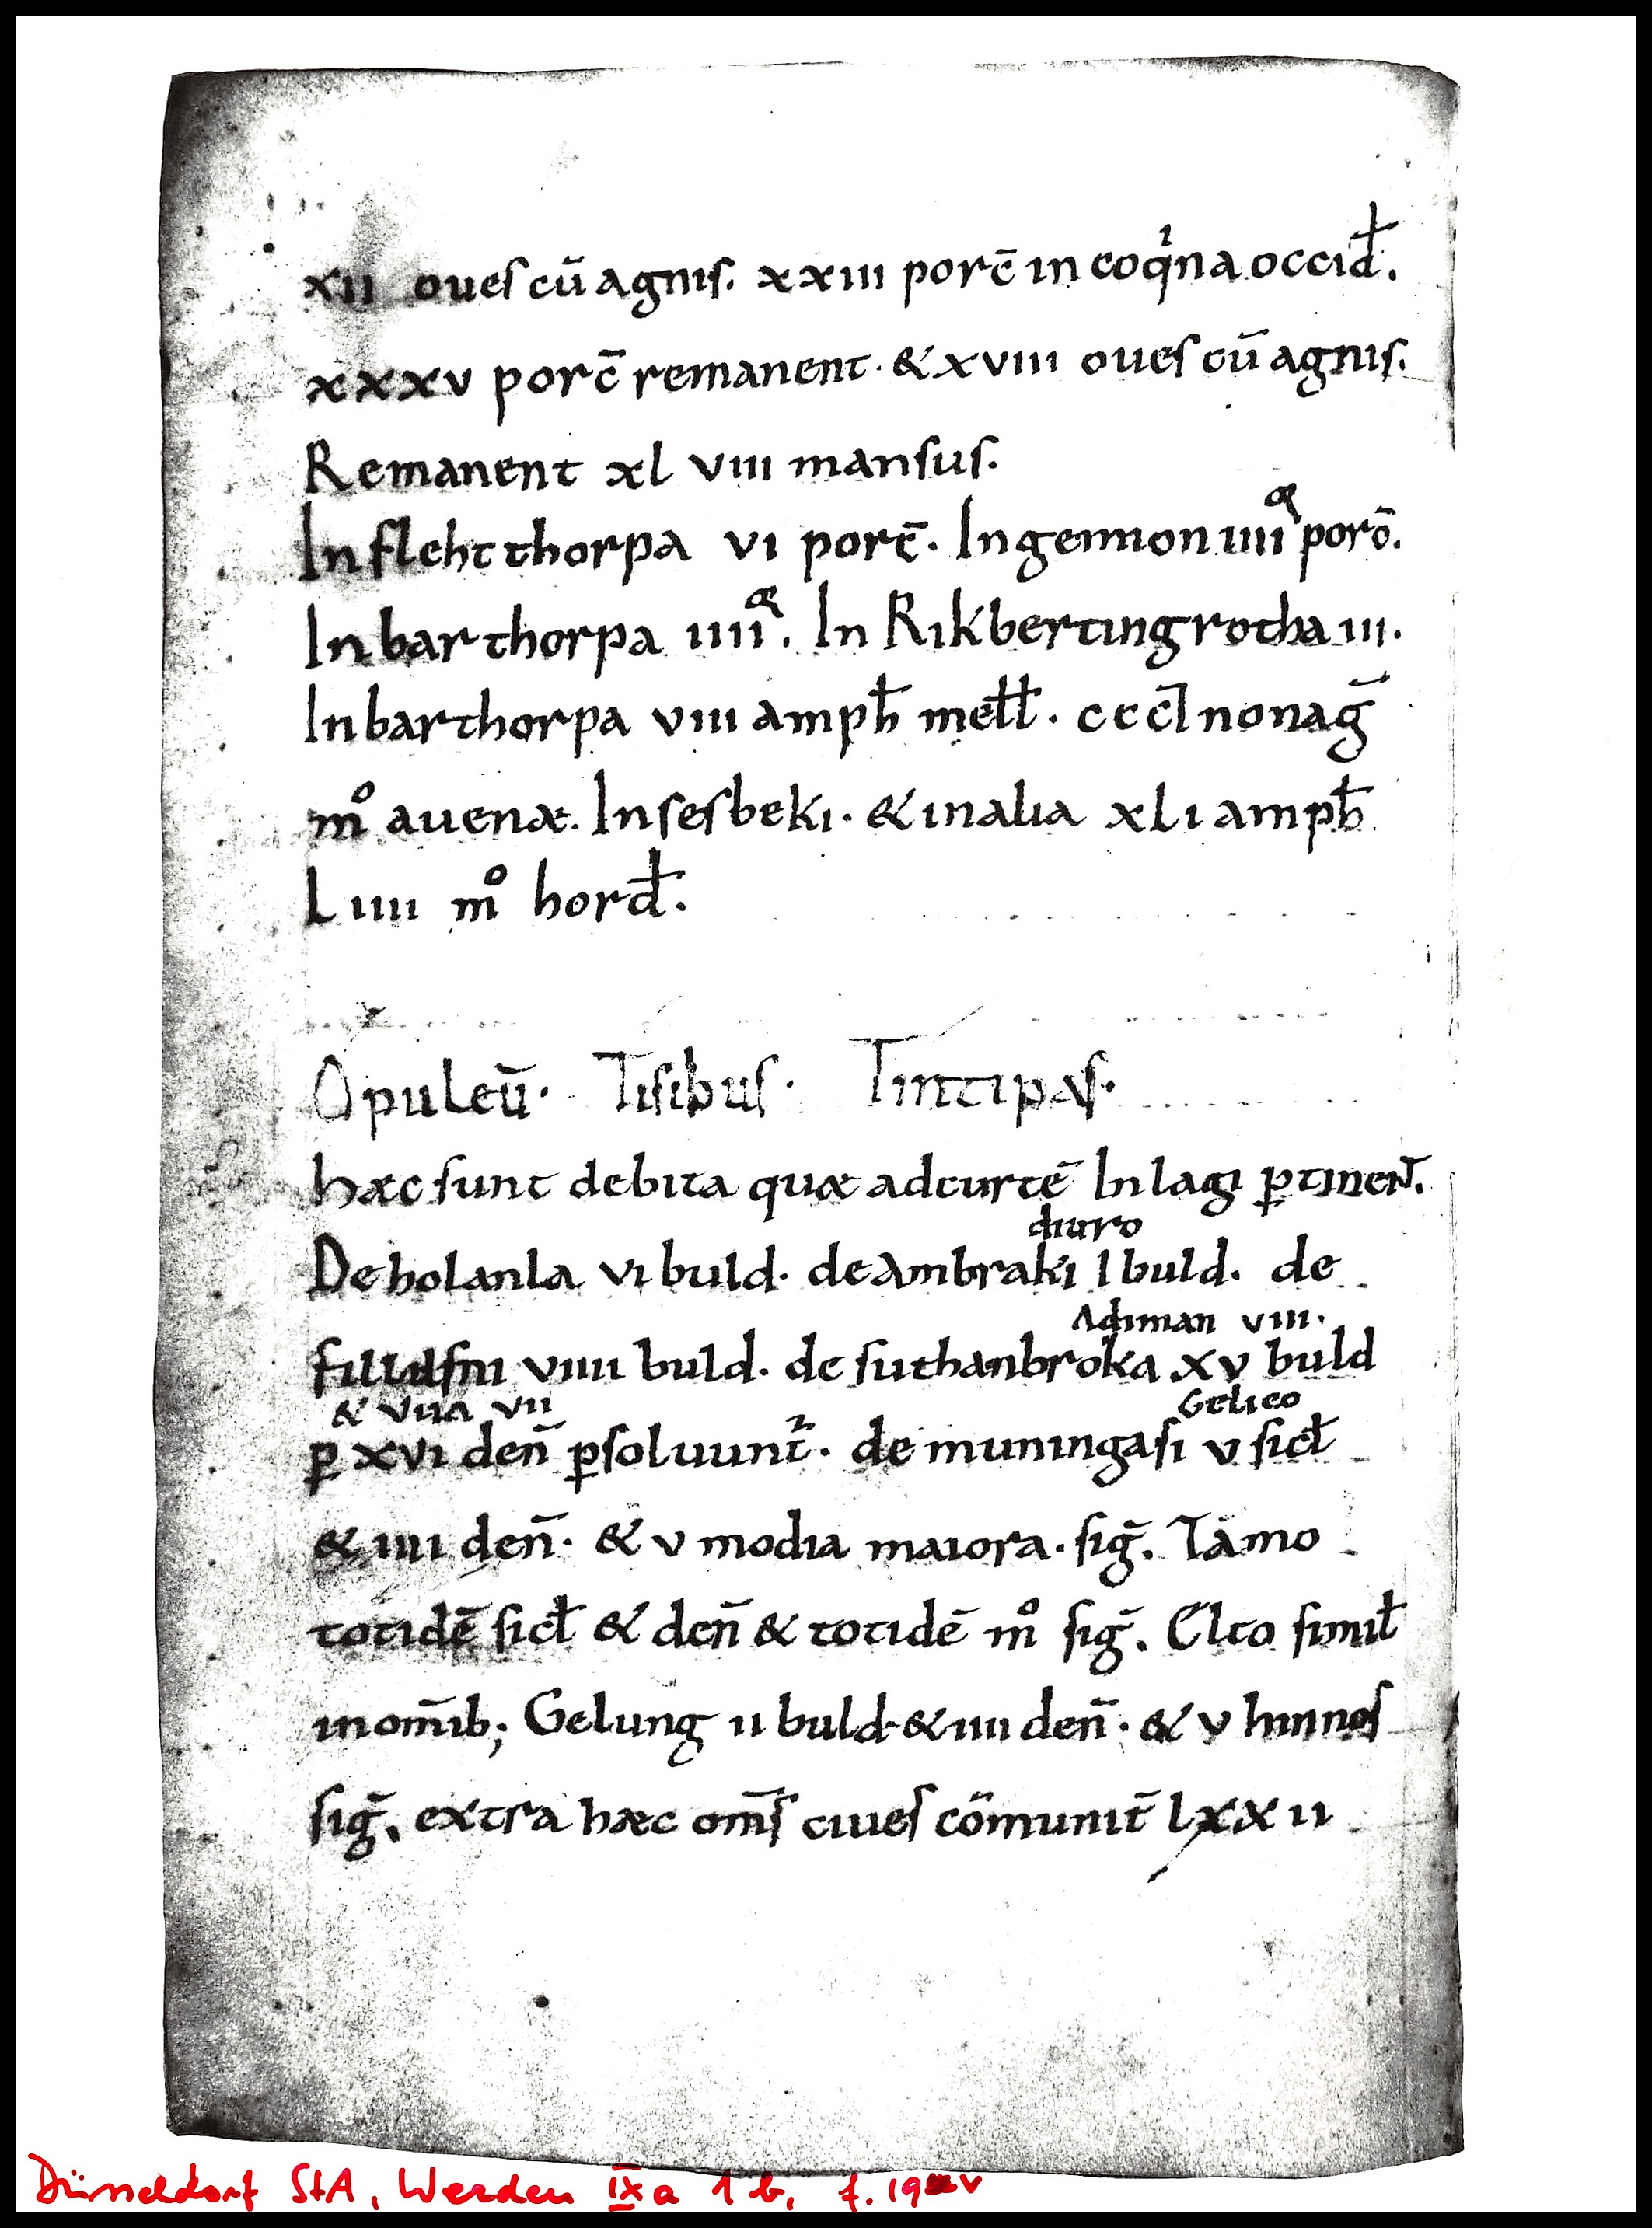 xII oues cū agnis. xxIII porc̄ in coqⁱna occiđ.
xxxv porc̄ remanent. & xvIII oues cū agnis.
Remanent xl vIII mansus.
In fleht thorpa vI porc̄. In gennon IIII porc̄.
In barthorpa IIII. In Rikbertingrotha III.
In barthorpa vIII ampħ meƚƚ. ccc̄l nonaḡ
m̊ auenæ. In sesbeki. & in alia xlI ampħ
L IIII m̊ horđ.
Apuleū. Tisibus. Tintipas.
hæc sunt debita quæ ad curtē In lagi ꝑtinent̄.
diuro
De holanla vI buld. de ambraki I buld. de
Adiman vIII.
vIIII buld. de suthanbroka xv buld
& vna vII Gelico
ꝑ xvI deñ ꝑsoluunt᷑. de muningasi v sicƚ
& IIII deñ. & v modia maiora. siḡ. Tāmo
totidē sicƚ & deñ & totidē m̊ siḡ. Elto similƚ
in om̄ib; Gelung II buld & IIII deñ. & v hinnos
siḡ. extra hæc om̄s ciues cōmunit̄ lxxII
Düsseldorf StA, Werden IX a 1 b, f. 19 v